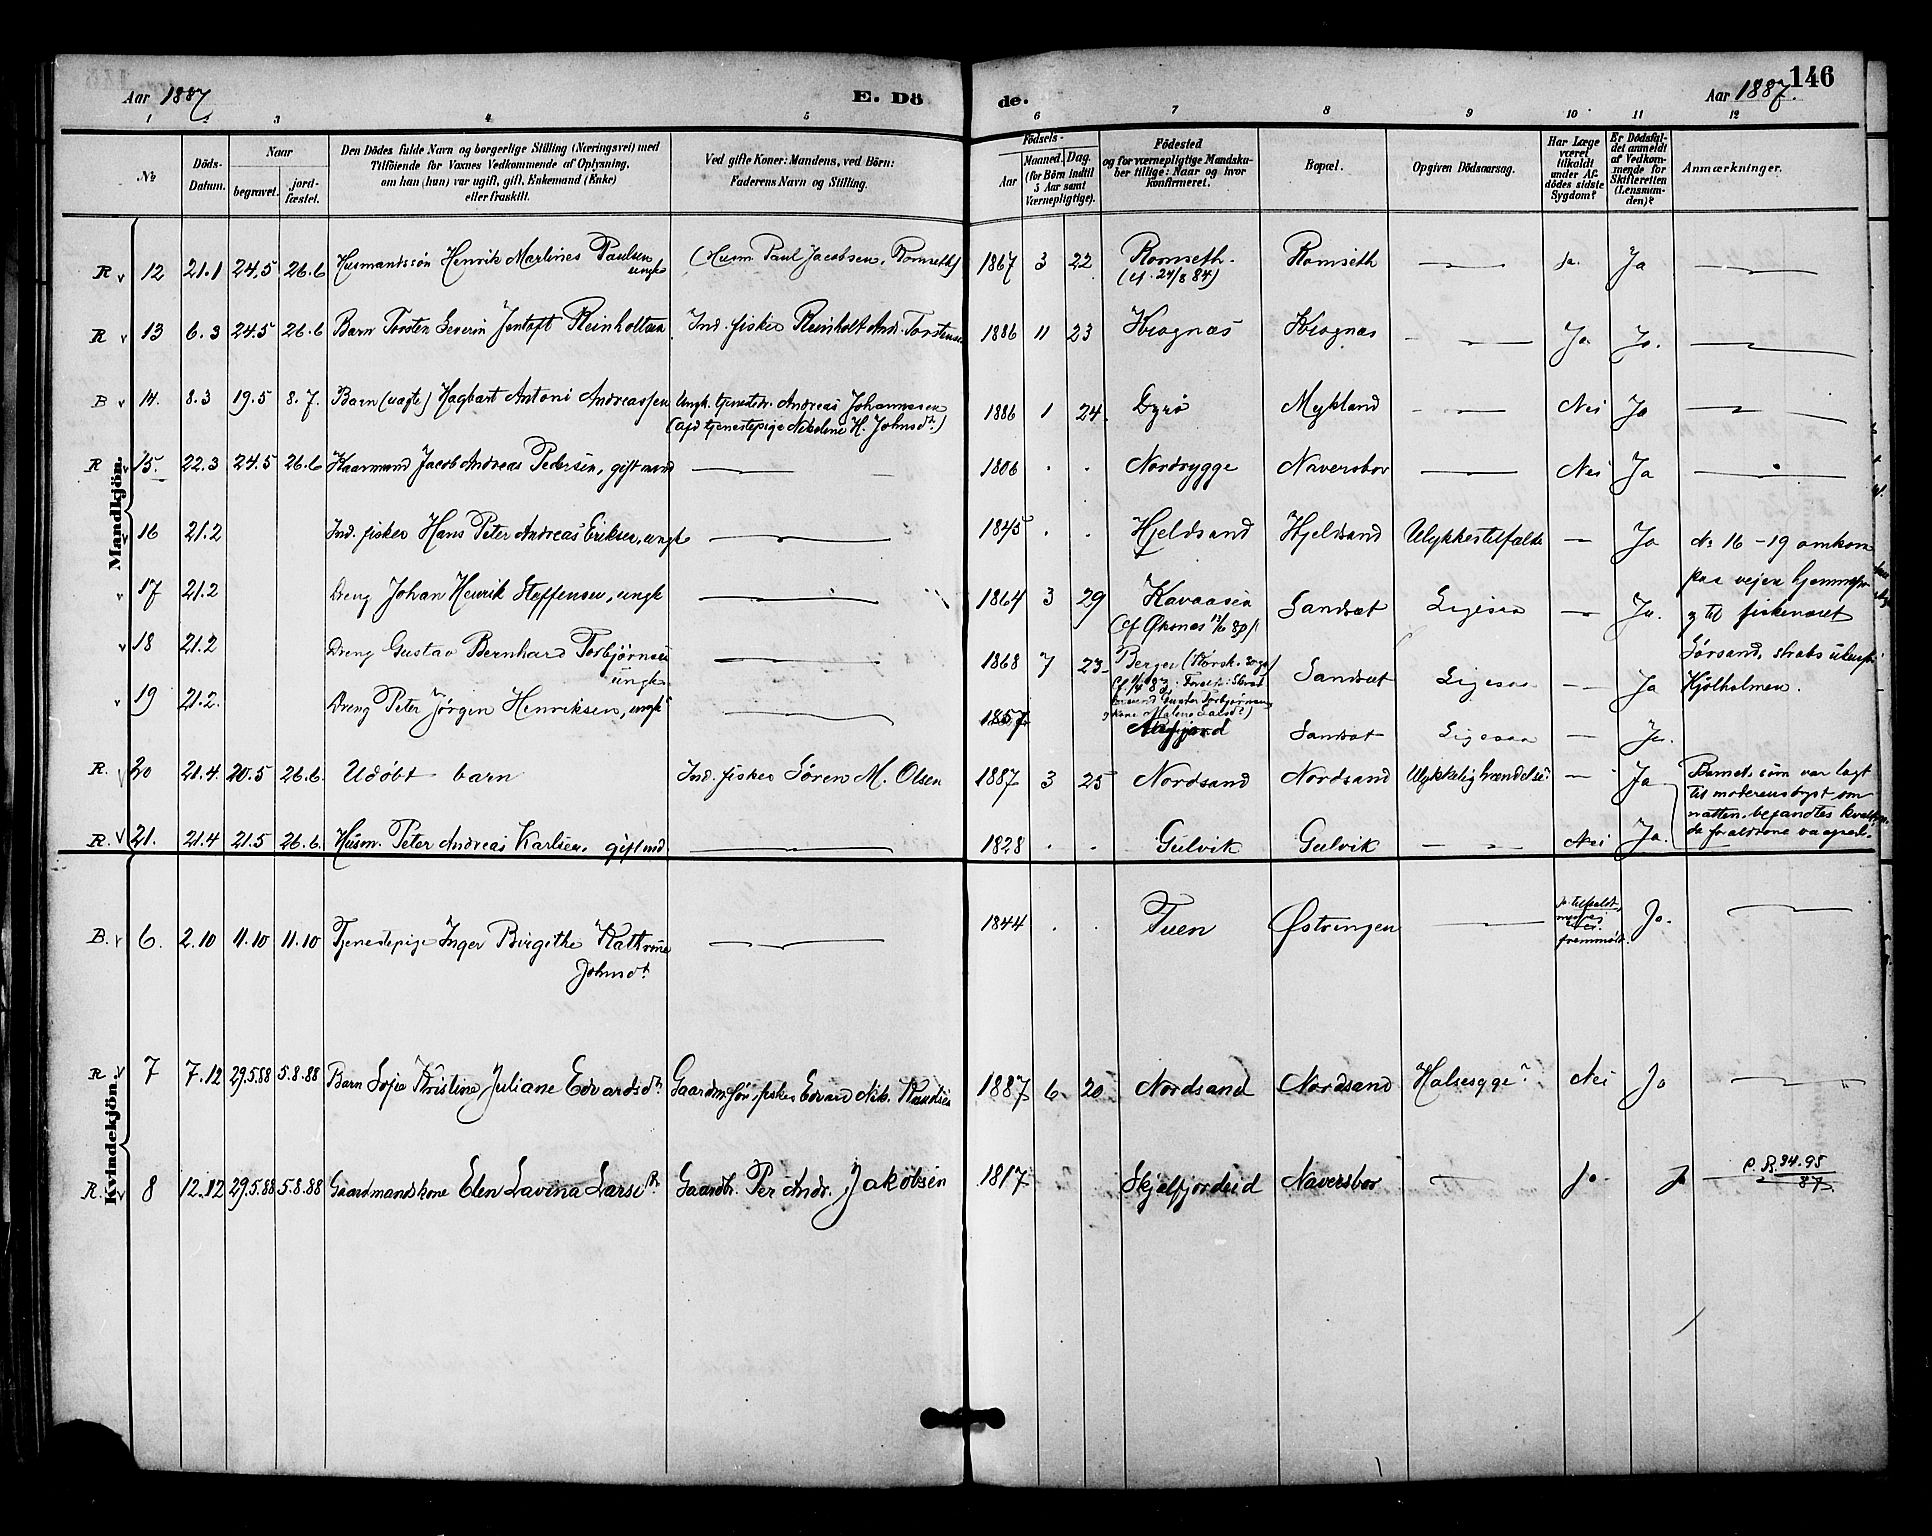 146
Aar 1887
E. Dö
de.
Aar 1887.
1 2 3 4 5 6 7 8 9 10 11 12
No
Döds-
Datum.
Naar
begravet.
jord-
fæstet.
Den Dödes fulde Navn og borgerlige Stilling (Næringsvei) med
Tilföiende for Voxnes Vedkommende af Oplysning,
om han (hun) var ugift, gift, Enkemand (Enke)
eller fraskilt.
Ved gifte Koner: Mandens, ved Börn:
Faderens Navn og Stilling.
Födsels-
Aar
Maaned. Dag.
(for Börn indtil
5 Aar samt
Værnepligtige).
Födested
og for værnepligtige Mandska-
ber tillige: Naar og hvor
konfirmeret.
Bopæl.
Opgiven Dödsaarsag.
Har Læge
været
tilkaldt
under Af-
dödes sidste
Sygdom?
Er Dödsfal-
det anmeldt
af Vedkom-
mende for
Skifteretten
(Lensman-
den)?
Anmærkninger.
Mandkjön.
R 12 21.1 24.5 26.6 Husmandssön Henrik Martines Paulsen (Husm. Paul Jacobsen, Romseth) 1867 3 22 Romseth. Romseth Ja. Ja
ungk (cf. 24/8 84)
R 13 6.3 24.5 26.6 Barn Torsten Severin Jentoft Reinholtsen Ind. fisker Reinholt And. Torstensen 1886 11 23 Krognæs Krognæs Ja. Ja.
B 14. 8.3 19.5 8.7. Barn (uægte) Hagbart Antoni Andreassen Ungk. tjenestedr. Andreas Johannessen 1886 1 24. Dyrö Mykland Nei Ja
(Afd tjenestepige Nikoline H. Johnsdr.)
R 15. 22.3 24.5 26.6 Kaarmand Jacob Andreas Pedersen, gift mand 1806 Nordrygge Naversbor Nei Ja
16 21.2 Ind. fisker Hans Peter Andreas Eriksen, ungk 1845 Hjeldsand Hjeldsand Ulykkestilfælde Ja No 16-19 omkom
17 21.2 Dreng Johan Henrik Steffensen, ungk 1864 3 29 Kavaasen Sandsæt Ligesaa Ja. paa veien hjemmefra
(cf Øksnæs 80) og til fiskeværet
18 21.2 Dreng Gustav Bernhard Torbjørnsen 1868 7 23 Berger Sandsæt Ligesaa Ja Sørsand, straks udenfor
ungk. Kjölholmen.
19 21.2. Dreng Peter Jörgen Henriksen, ungk 1857 Sandsæt Ligesaa Ja.
R. 20 21.4. 20.5 26.6. Udöbt barn Ind. fisker Sören M. Olsen 1887 3 25 Nordsand Nordsand Ulykkelig hændelse. Ja Barnet, som var lagt
til moderens bryst om
natten, befandtes kvalt,
da forældrene vaagned.
R. 21. 21.4 21.5 26.6. Husm. Peter Andreas Karlsen, gift md 1828 Gulvik Gulvik Nei Ja.
Kvindekjön.
B. 6. 2.10 11.10 11.10 Tjenestepige Inger Birgithe Kathrine 1844 Tuen Østringen Ja tilkaldt, Ja.
Johnsdr. fremmödt.
R 7 7.12 29.5.88 5.8.88 Barn Sofie Kristine Juliane Edvardsdr. Gaardm. sön, fisker Edvard Nik. Knudsen 1887 6 20 Nordsand Nordsand Halssyge? Nei Ja
R. 8 12.12 29.5.88 5.8.88 Gaardmandskone Elen Lavina Larsdr. Gaardbr. Per Andr. Jakobsen 1817 Skjelfjordeid Naversbor Ja. Ja P. R. 94.95
87.